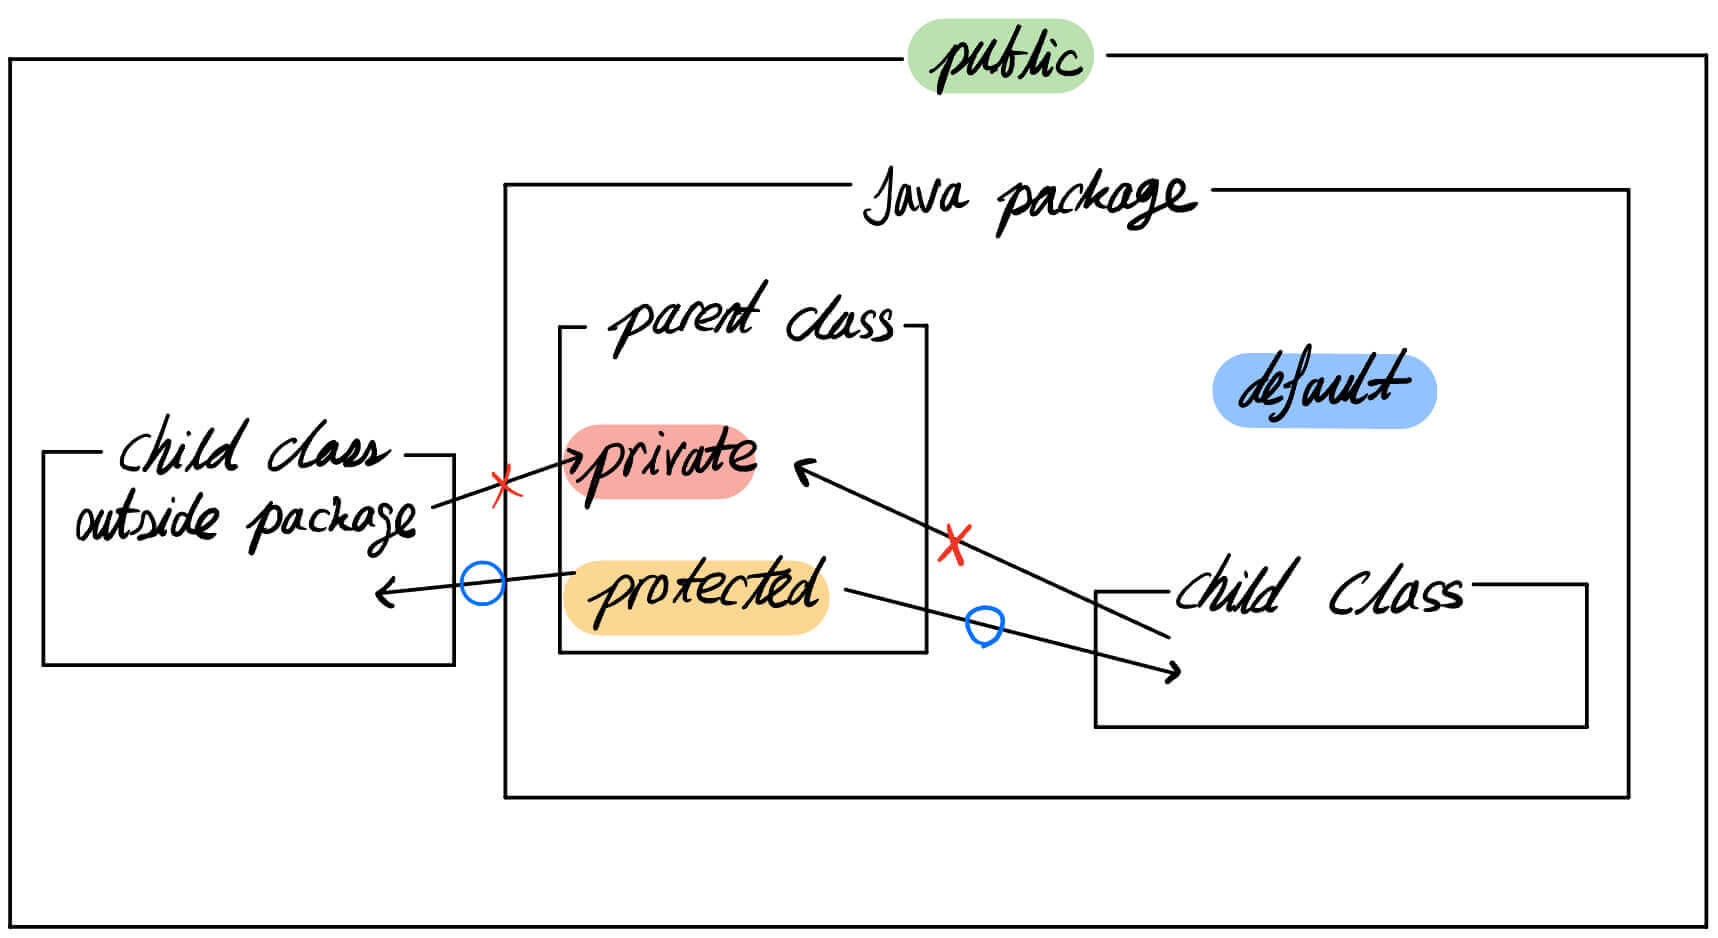 public
Java package
parent class
default
child class
outside package
private
protected
child class